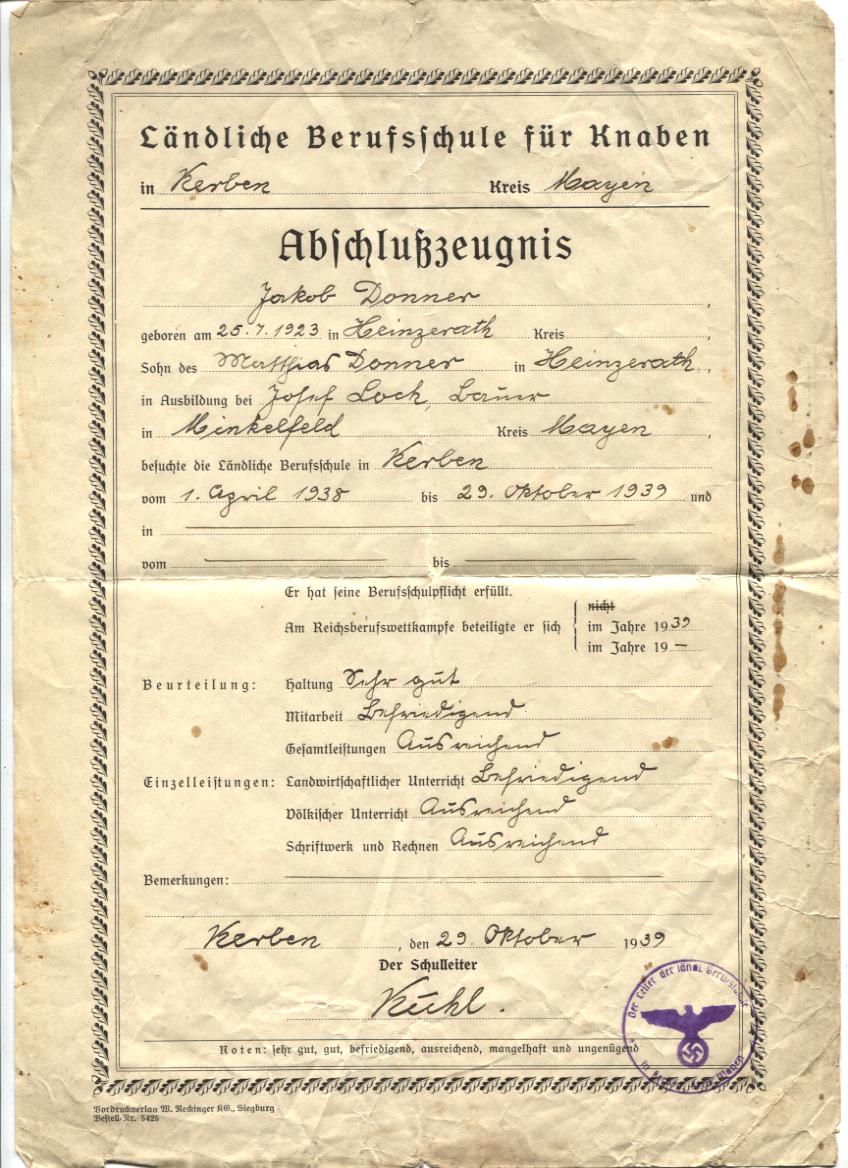 Ländliche Berufsschule für Knaben
in Kerben Kreis Mayen
Abschlußzeugnis
Jakob Donner,
geboren am 25.7.1923 in Heinzerath Kreis,
Sohn des Matthias Donner in Heinzerath,
in Ausbildung bei Josef Loch, Bauer
in Minkelfeld Kreis Mayen,
besuchte die Ländliche Berufsschule in Kerben
vom 1. April 1938 bis 29. Oktober 1939 und
in
vom bis
Er hat seine Berufsschulpflicht erfüllt.
nicht
Am Reichsberufswettkampfe beteiligte er sich { im Jahre 1939
im Jahre 19 —
Beurteilung: Haltung Sehr gut
Mitarbeit Befriedigend
Gesamtleistungen Ausreichend
Einzelleistungen: Landwirtschaftlicher Unterricht Befriedigend
Völkischer Unterricht Ausreichend
Schriftwerk und Rechnen Ausreichend
Bemerkungen:
Kerben, den 29. Oktober 1939
Der Schulleiter
Kühl.
Der Leiter der ländl. Berufsschule
Noten: sehr gut, gut, befriedigend, ausreichend, mangelhaft und ungenügend
Vordruckverlag W. Reckinger KG., Siegburg
Bestell-Nr. 5425